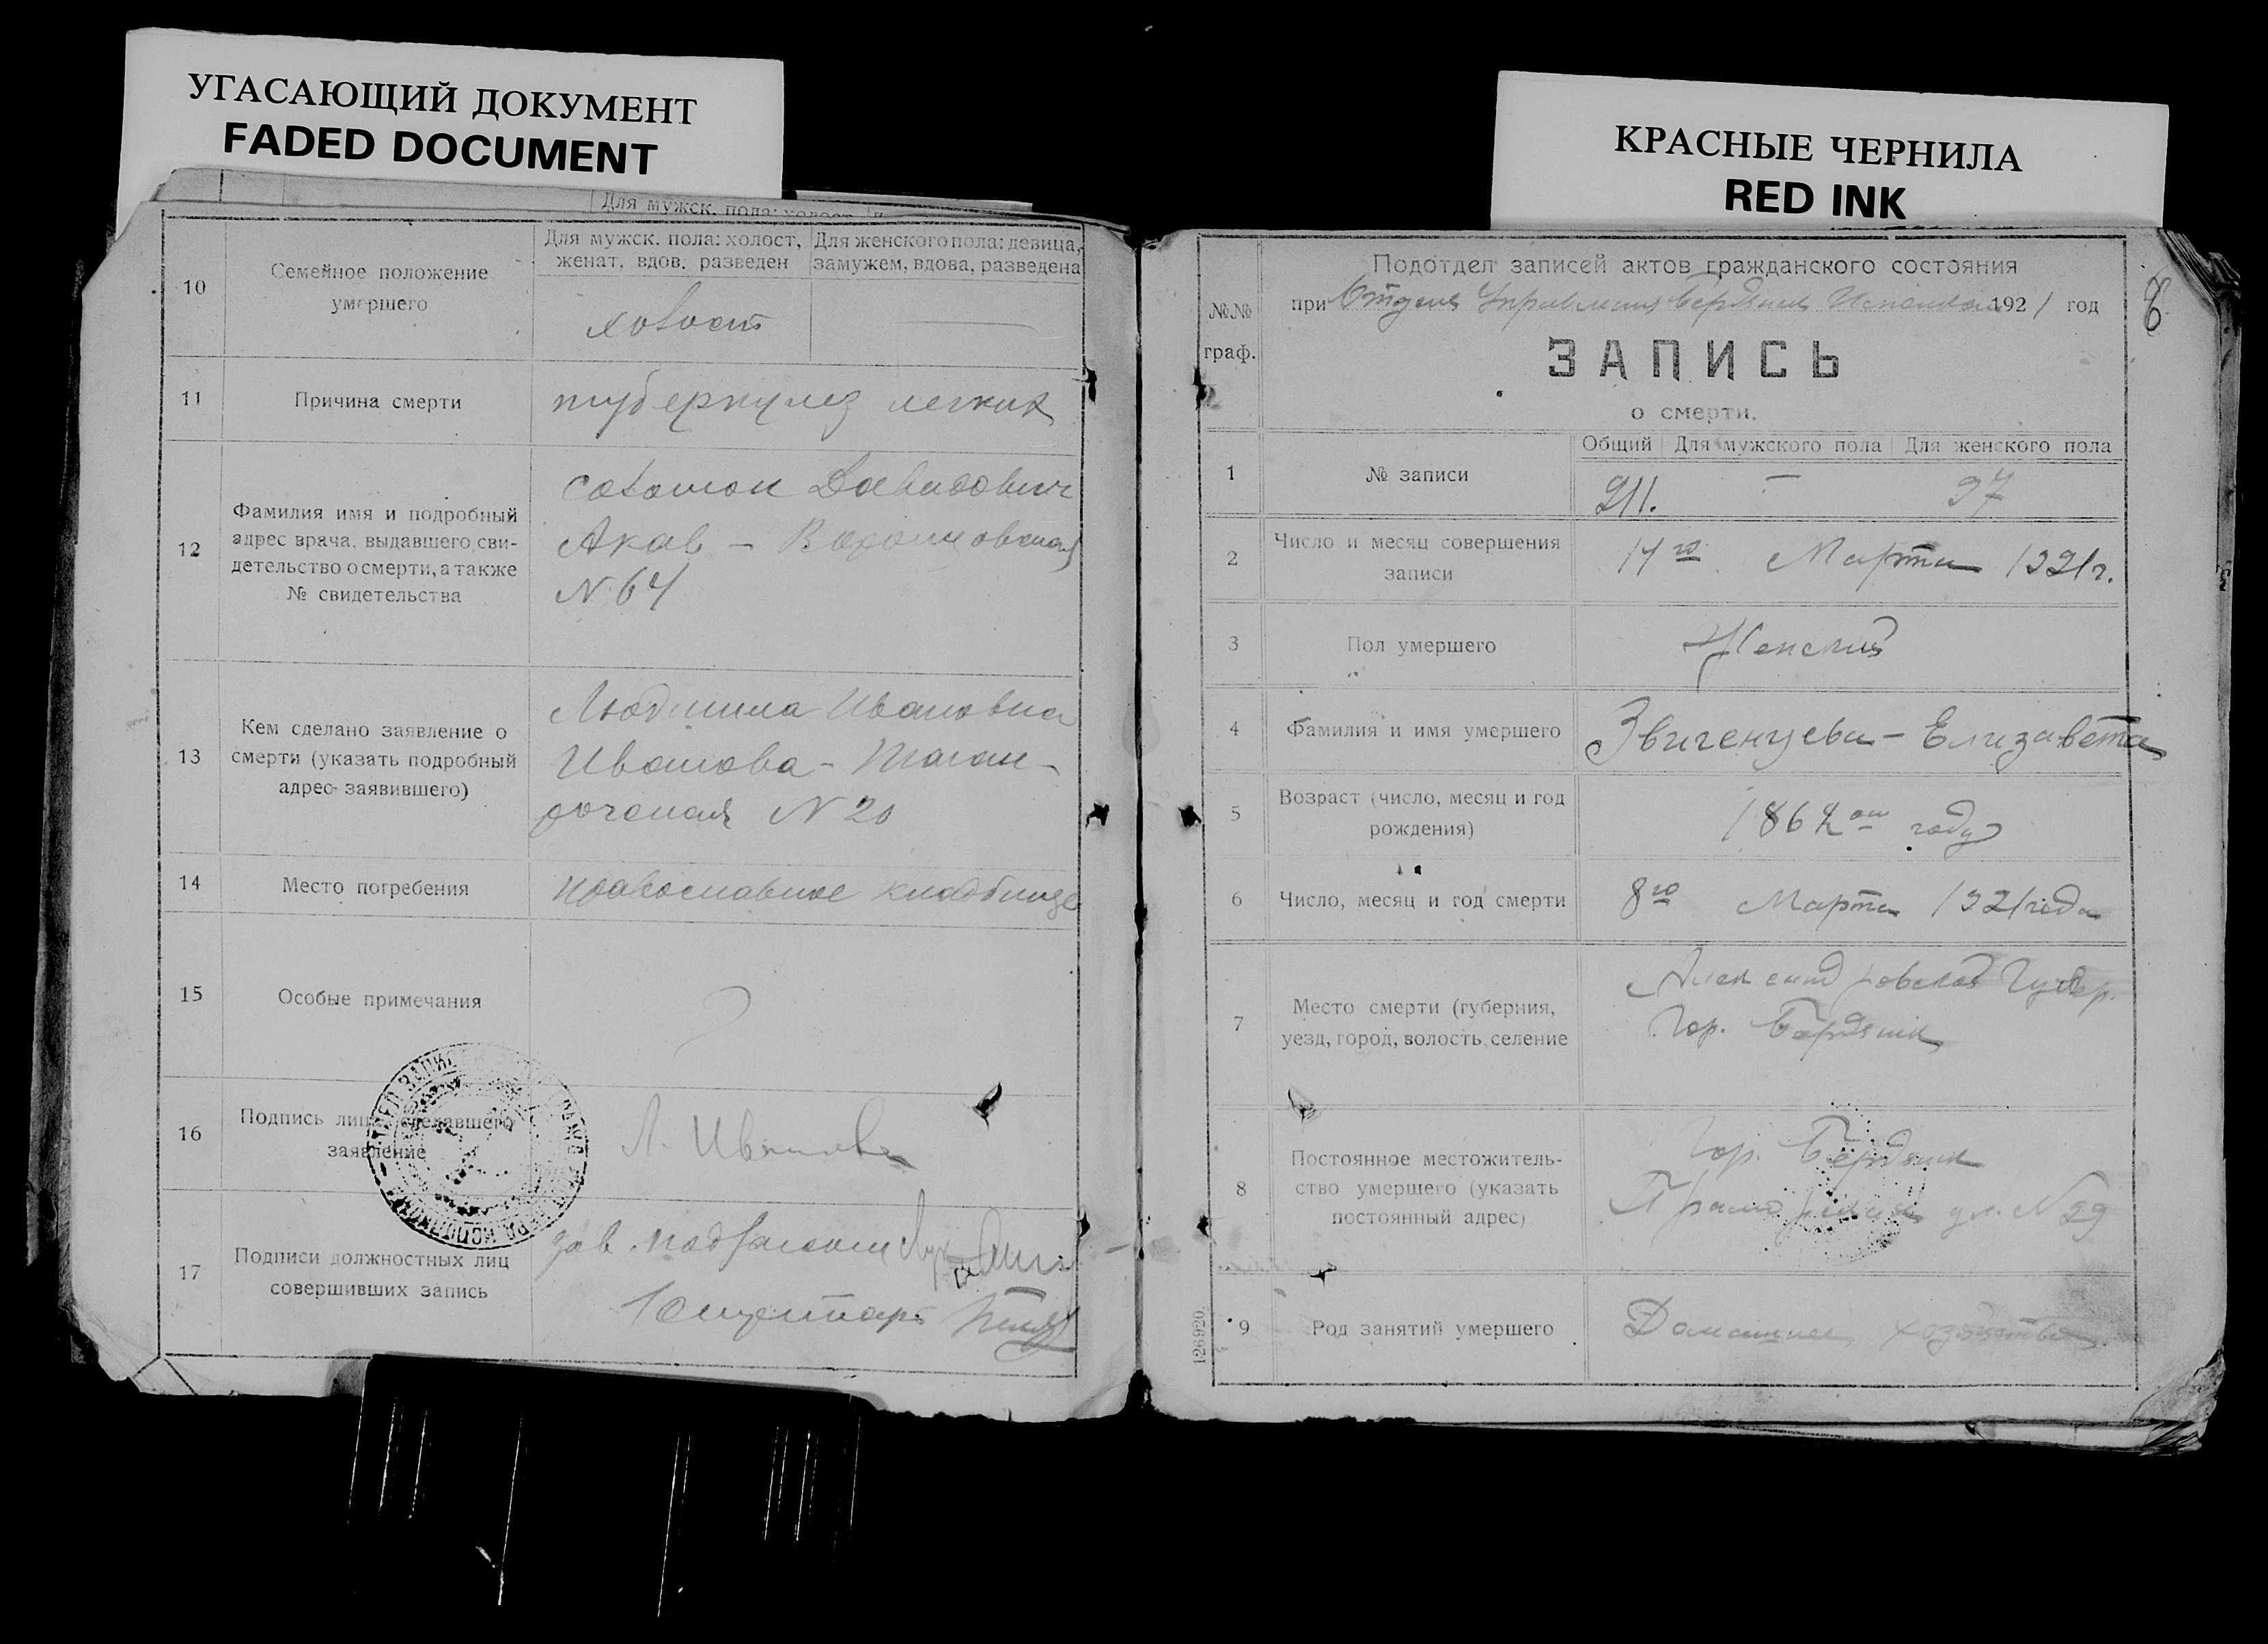 УГАСАЮЩИЙ ДОКУМЕНТ
FADED DOCUMENT
КРАСНЫЕ ЧЕРНИЛА
RED INK
Для мужск. пола: холост,
10
Семейное положение
умершего
Для мужск. пола: холост,
женат, вдов, разведен
Для женского пола: девица,
замужем, вдова, разведена
холост
11
Причина смерти
туберкулез легких
12
Фамилия имя и подробный
адрес врача, выдавшего сви-
детельство о смерти, а также
№ свидетельства
Соломон Давидович
Акав - Воронцовская
N 64
13
Кем сделано заявление о
смерти (указать подробный
адрес заявившего)
Людмила Ивановна
Иванова - Таган-
рогская N 20
14
Место погребения
православное кладбище
15
Особые примечания
16
Подпись лица, сделавшего
заявление
Л. Иванова
17
Подписи должностных лиц
совершивших запись
Зав.
№№
граф.
Подотдел записей актов гражданского состояния
при Отделе Управления Бердянск Исполкома 1921 год
8
ЗАПИСЬ
о смерти.
1
№ записи
Общий Для мужского пола Для женского пола
211. — 97
2
Число и месяц совершения
записи
14го Марта 1921 г.
3
Пол умершего
Женский
4
Фамилия и имя умершего
Звигенцева - Елизавета
5
Возраст (число, месяц и год
рождения)
1862 году
6
Число, месяц и год смерти
8го Марта 1921 года
7
Место смерти (губерния,
уезд, город, волость, селение
Александровской Губер.
Гор. Бердянск
8
Постоянное местожитель-
ство умершего (указать
постоянный адрес)
Гор. Бердянск
ул. N 29
9
Род занятий умершего
Домашнее хозяйство
126920.